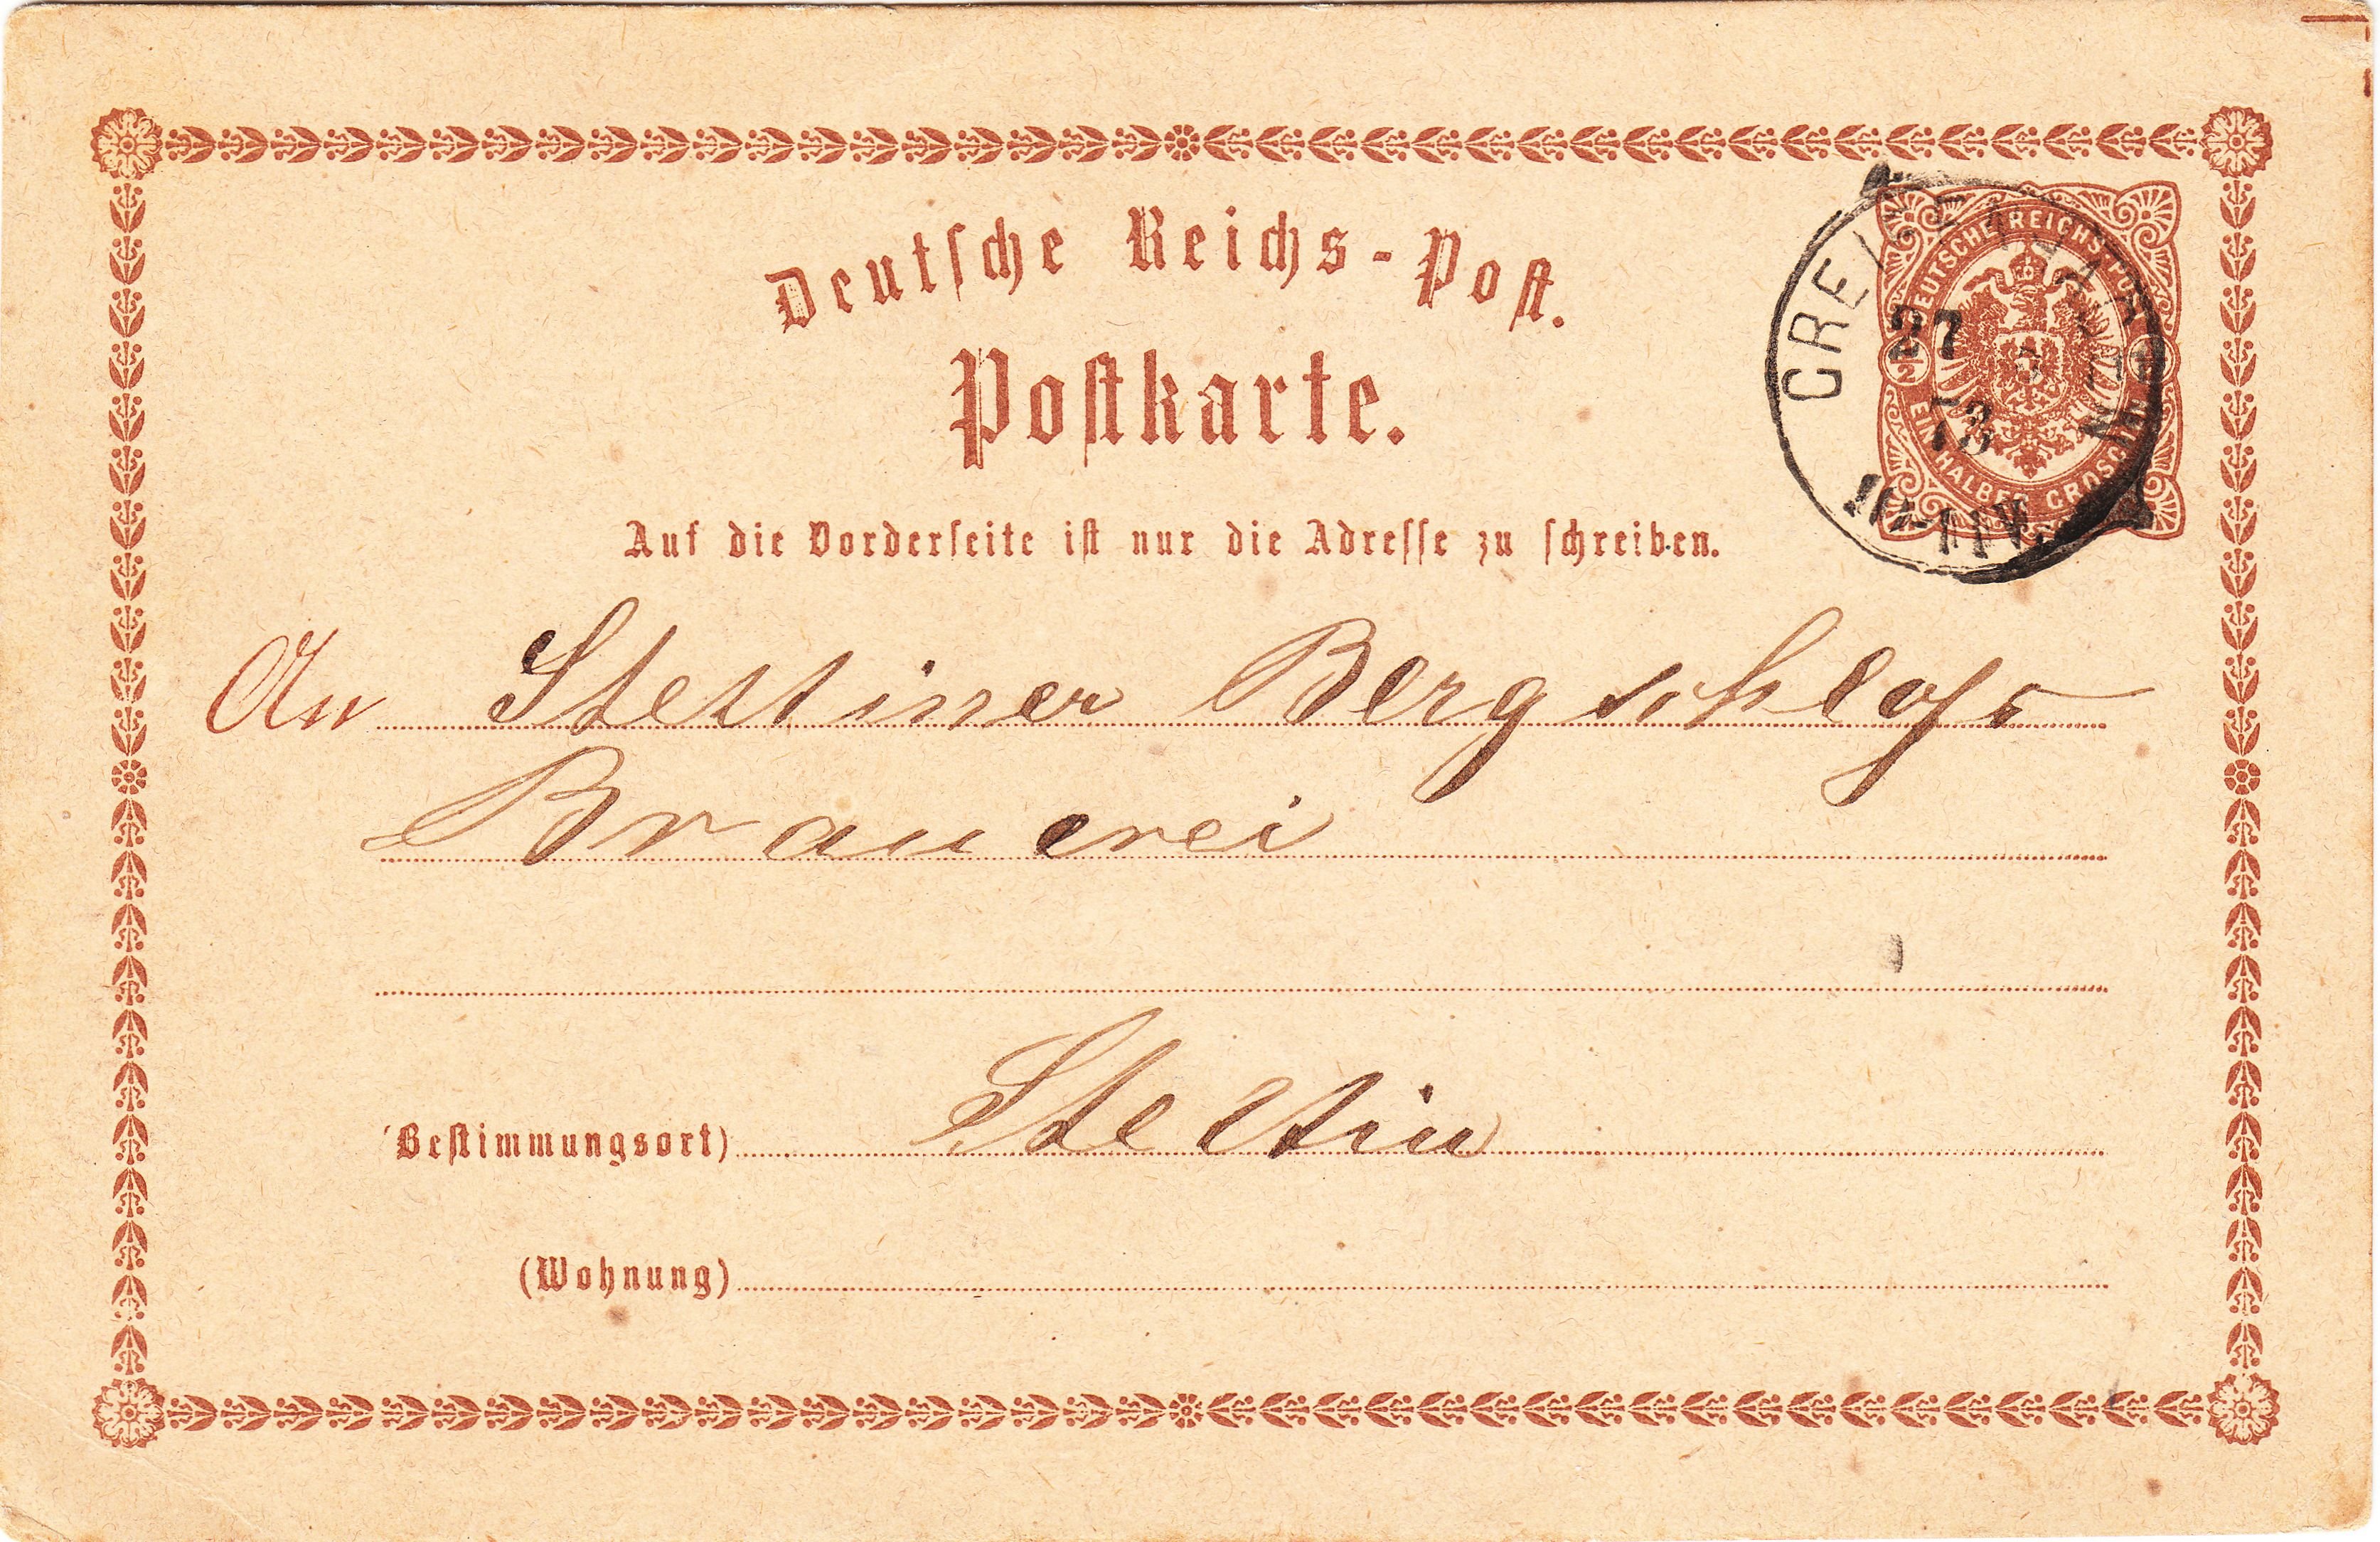 Deutsche Reichs-Post.
Postkarte.
Auf die Vorderseite ist nur die Adresse zu schreiben.
DEUTSCHE REICHS-POST
1/2
EIN HALBER GROSCHEN
27
73
10-11V.
An Stettiner Bergschloss
Brauerei
(Bestimmungsort) Stettin
(Wohnung)